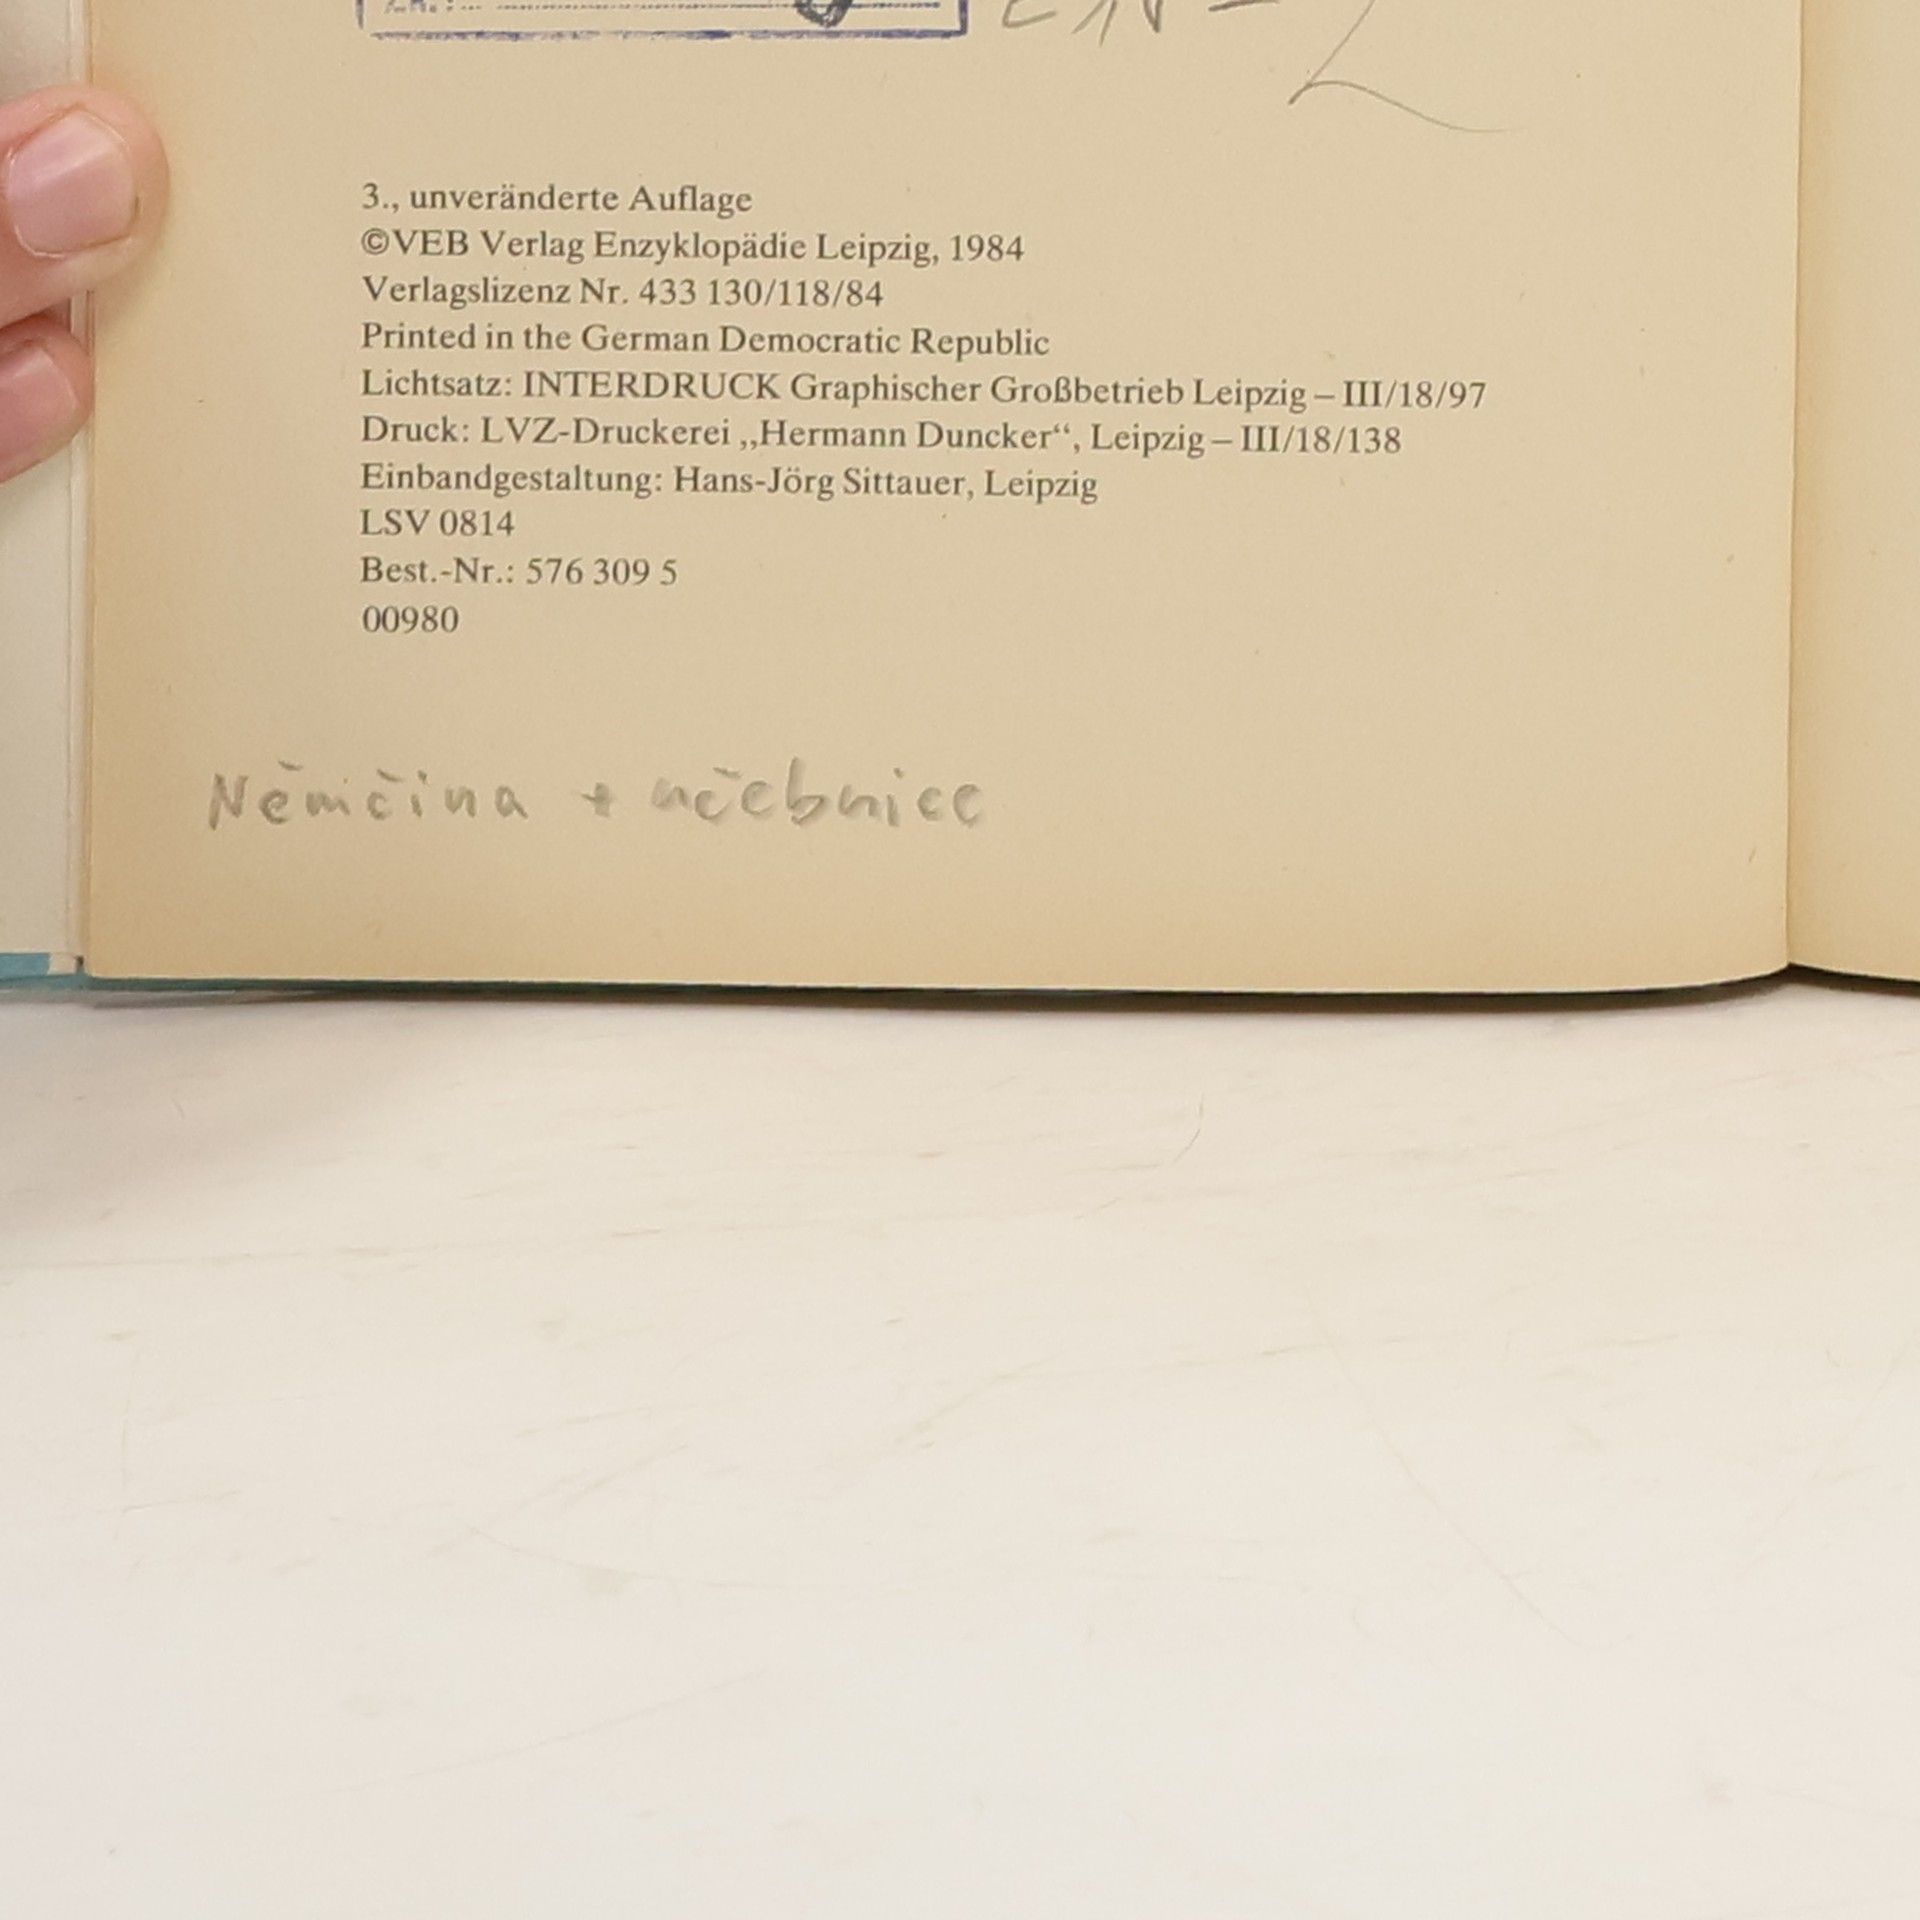 3., unveränderte Auflage
©VEB Verlag Enzyklopädie Leipzig, 1984
Verlagslizenz Nr. 433 130/118/84
Printed in the German Democratic Republic
Lichtsatz: INTERDRUCK Graphischer Großbetrieb Leipzig – III/18/97
Druck: LVZ-Druckerei „Hermann Duncker“, Leipzig – III/18/138
Einbandgestaltung: Hans-Jörg Sittauer, Leipzig
LSV 0814
Best.-Nr.: 576 309 5
00980
Němčina + učebnice